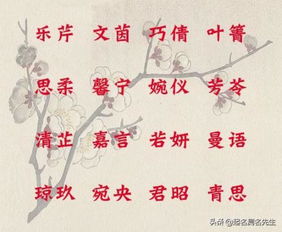 乐芹 文茵 巧倩 叶箐
思柔 馨宁 婉仪 芳苓
清芷 嘉言 若妍 曼语
琼玖 宛央 君昭 青思
头条@起名周名先生